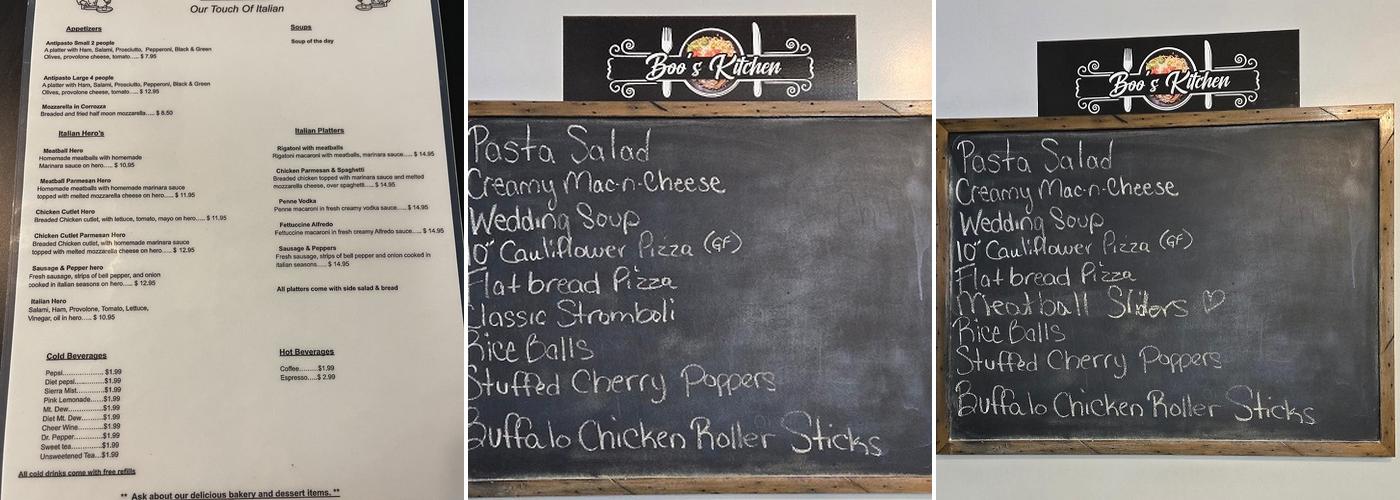 Our Touch Of Italian
Appetizers
Antipasto Small 2 people
A platter with Ham, Salami, Prosciutto, Pepperoni, Black & Green
Olives, provolone cheese, tomato..... $ 7.95
Antipasto Large 4 people
A platter with Ham, Salami, Prosciutto, Pepperoni, Black & Green
Olives, provolone cheese, tomato..... $ 12.95
Mozzarella in Corrozza
Breaded and fried half moon mozzarella..... $ 8.50
Soups
Soup of the day
Italian Hero's
Meatball Hero
Homemade meatballs with homemade
Marinara sauce on hero..... $ 10.95
Meatball Parmesan Hero
Homemade meatballs with homemade marinara sauce
topped with melted mozzarella cheese on hero..... $ 11.95
Chicken Cutlet Hero
Breaded Chicken cutlet, with lettuce, tomato, mayo on hero..... $ 11.95
Chicken Cutlet Parmesan Hero
Breaded Chicken cutlet, with homemade marinara sauce
topped with melted mozzarella cheese on hero..... $ 12.95
Sausage & Pepper hero
Fresh sausage, strips of bell pepper, and onion
cooked in italian seasons on hero..... $ 12.95
Italian Hero
Salami, Ham, Provolone, Tomato, Lettuce,
Vinegar, oil in hero..... $ 10.95
Italian Platters
Rigatoni with meatballs
Rigatoni macaroni with meatballs, marinara sauce..... $ 14.95
Chicken Parmesan & Spaghetti
Breaded chicken topped with marinara sauce and melted
mozzarella cheese, over spaghetti..... $ 14.95
Penne Vodka
Penne macaroni in fresh creamy vodka sauce..... $ 14.95
Fettuccine Alfredo
Fettuccine macaroni in fresh creamy Alfredo sauce..... $ 14.95
Sausage & Peppers
Fresh sausage, strips of bell pepper and onion cooked in
italian seasons..... $ 14.95
All platters come with side salad & bread
Cold Beverages
Pepsi.................... $1.99
Diet pepsi..............$1.99
Sierra Mist............$1.99
Pink Lemonade......$1.99
Mt. Dew................$1.99
Diet Mt. Dew..........$1.99
Cheer Wine............$1.99
Dr. Pepper.............$1.99
Sweet tea..............$1.99
Unsweetened Tea...$1.99
All cold drinks come with free refills
Hot Beverages
Coffee.........$1.99
Espresso.....$ 2.99
** Ask about our delicious bakery and dessert items. **
Boo's Kitchen
Pasta Salad
Creamy Mac-n-Cheese
Wedding Soup
10" Cauliflower Pizza (GF)
Flatbread Pizza
Classic Stromboli
Rice Balls
Stuffed Cherry Poppers
Buffalo Chicken Roller Sticks
Boo's Kitchen
Pasta Salad
Creamy Mac-n-Cheese
Wedding Soup
10" Cauliflower Pizza (GF)
Flatbread Pizza
Meatball Sliders ♡
Rice Balls
Stuffed Cherry Poppers
Buffalo Chicken Roller Sticks